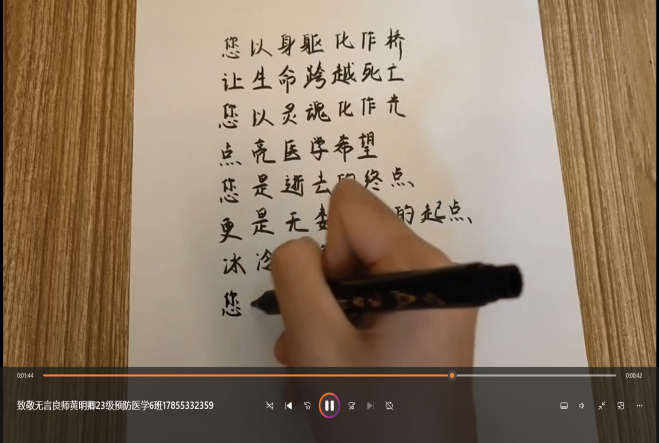 您以身躯化作桥
让生命跨越死亡
您以灵魂化作光
点亮医学希望
您是逝去的终点
更是无 的起点
冰冷
您
0:01:44
0:00:42
致敬无言良师黄明卿23级预防医学6班17855332359